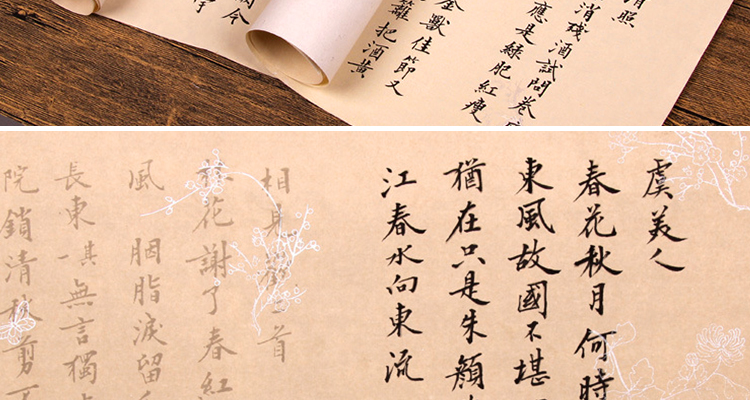 清照
消殘酒試問卷
應是綠肥紅瘦
金獸佳節又
籬把酒黃
今
虞美人
春花秋月何時
東風故國不堪
猶在只是朱顏
江春水向東流
相見歡二首
林花謝了春紅
風 胭脂淚留
長東 其一 無言獨
院鎖清秋剪不